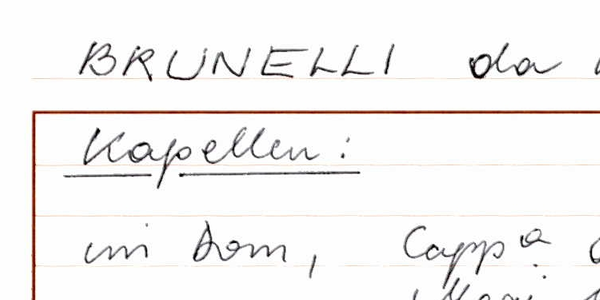 BRUNELLI da
Kapellen:
im Dom, Capp.a